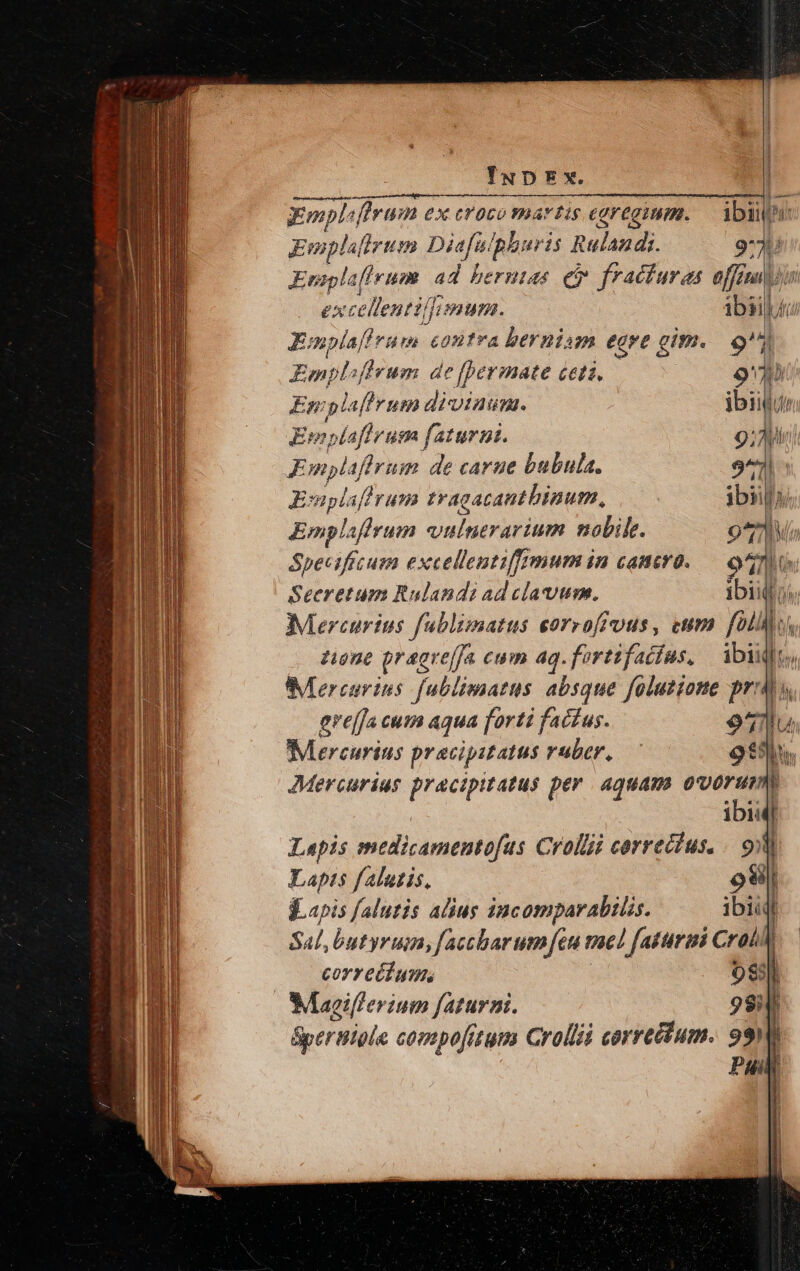 INDEX.
Emplaſtrum ex croco martis egregium. ibid
Emplaſtrum Diaſulphuris Rulandi. 97
Emplaſtrum ad hernias & fracturas oſſium
excellentiſſimum. ibid
Emplaſtrum contra herniam egregium. 97
Emplaſtrum de ſpermate ceti, 97
Emplaſtrum divinum. ibid
Emplaſtrum ſaturni. 97
Emplaſtrum de carne bubula. 97
Emplaſtrum tragacanthinum, ibid
Emplaſtrum vulnerarium nobile. 97
Specificum excellentiſſimum in cancro. 97
Secretum Rulandi ad clavum. ibid
Mercurius ſublimatus corroſivus, cum ſolu
tione prægreſſa cum aq. forti factus, ibid
Mercurius ſublimatus absque ſolutione præ
greſſa cum aqua forti factus. 97
Mercurius præcipitatus ruber, 98
Mercurius præcipitatus per aquam ovorum
ibid
Lapis medicamentoſus Crollii correctus. 9
Lapis ſalutis, 98
Lapis ſalutis alius incomparabilis. ibid
Sal, butyrum, ſaccharum ſeu mel ſaturni Croll
correctum, 98
Magiſterium ſaturni. 98
Sperniolæ compoſitum Crollii correctum. 99
Pul